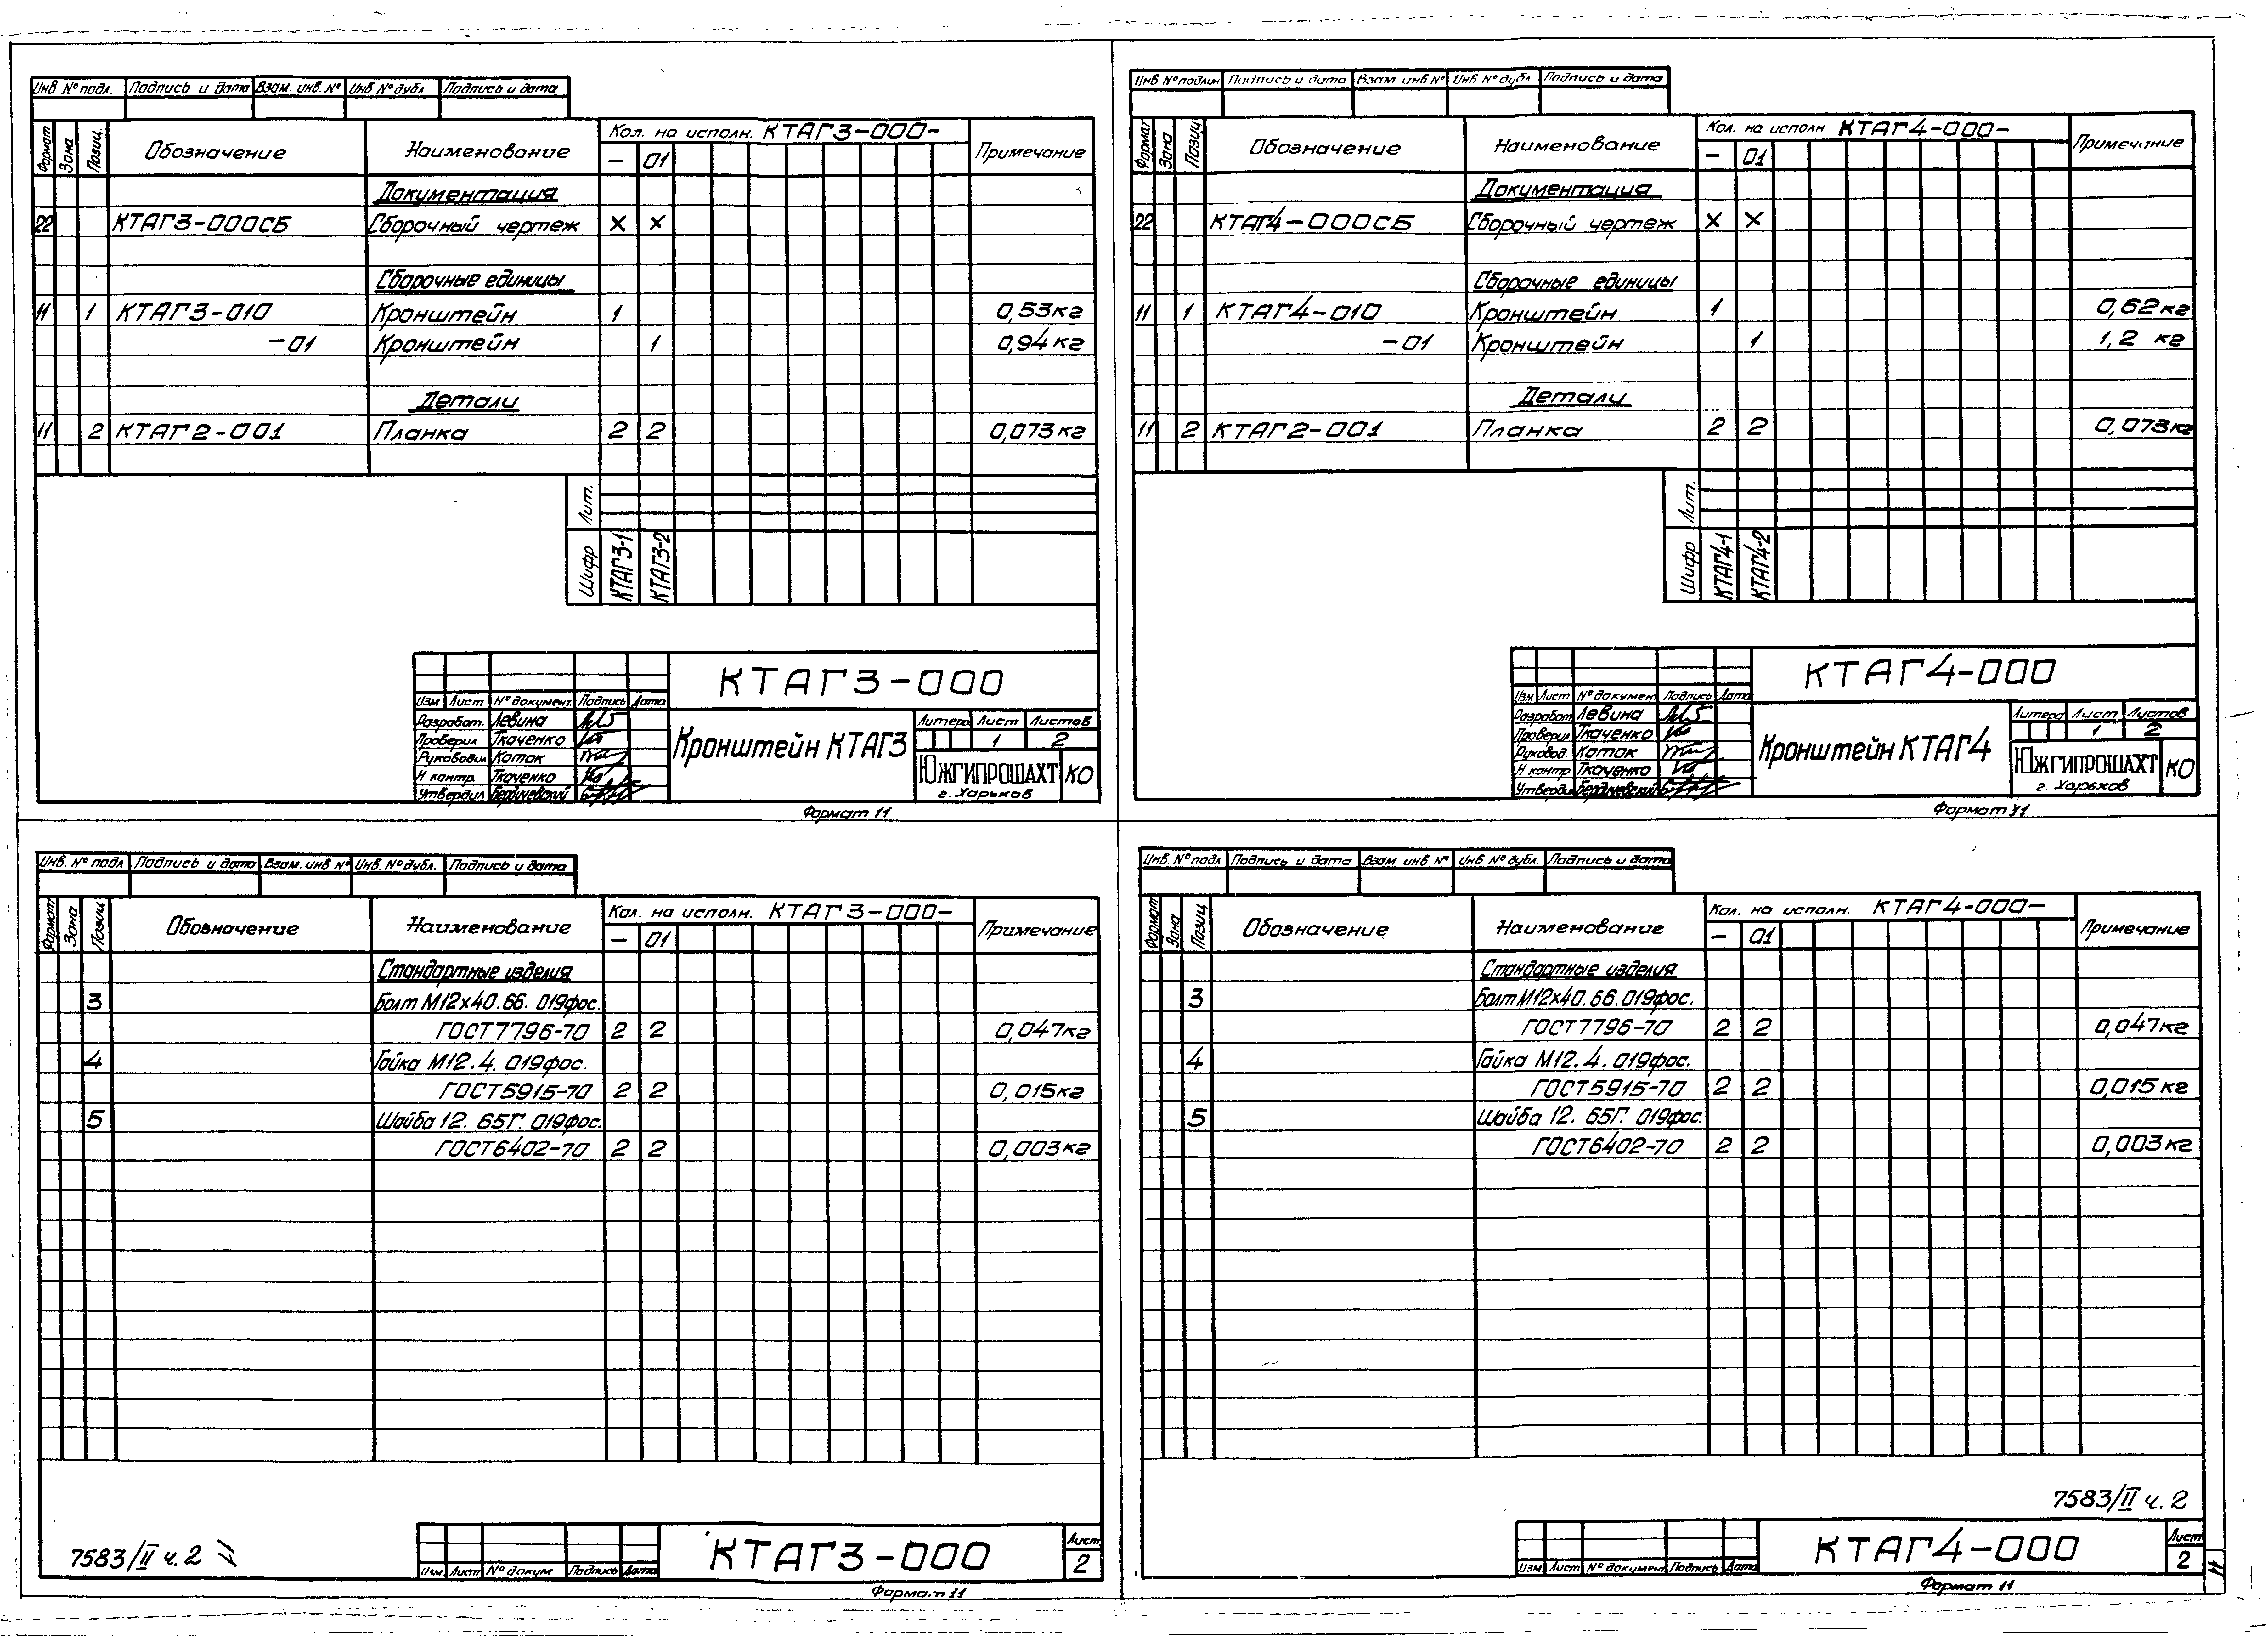 Инв № подл. Подпись и дата Взам. инв. № Инв № дубл Подпись и дата
Формат Зона Позиц. Обозначение Наименование Кол. на исполн. КТАГ3-000- Примечание
– 01
Документация
22 КТАГ3-000СБ Сборочный чертеж × ×
Сборочные единицы
11 1 КТАГ3-010 Кронштейн 1 0,53кг
-01 Кронштейн 1 0,94кг
Детали
11 2 КТАГ2-001 Планка 2 2 0,073кг
Лит.
Шифр КТАГ3-1 КТАГ3-2
КТАГ3-000
Изм Лист № документ. Подпись Дата
Разработ. Левина
Проверил Ткаченко
Руководил Коток
Н контр. Ткаченко
Утвердил Бердичевский
Кронштейн КТАГ3
Литера Лист Листов
1 2
ЮЖГИПРОШАХТ КО
г. Харьков
Формат 11
Инв № подлин Подпись и дата Взам инв № Инв № дубл Подпись и дата
Формат Зона Позиц Обозначение Наименование Кол. на исполн КТАГ4-000- Примечание
– 01
Документация
22 КТАГ4-000СБ Сборочный чертеж × ×
Сборочные единицы
11 1 КТАГ4-010 Кронштейн 1 0,62кг
-01 Кронштейн 1 1,2 кг
Детали
11 2 КТАГ2-001 Планка 2 2 0,073кг
Лит.
Шифр КТАГ4-1 КТАГ4-2
КТАГ4-000
Изм Лист № документ Подпись Дата
Разработ Левина
Проверил Ткаченко
Руковод. Коток
Н контр Ткаченко
Утвердил Бердичевский
Кронштейн КТАГ4
Литера Лист Листов
1 2
ЮЖГИПРОШАХТ КО
г. Харьков
Формат 11
Инв. № подл Подпись и дата Взам. инв № Инв. № дубл. Подпись и дата
Формат Зона Позиц Обозначение Наименование Кол. на исполн. КТАГ3-000- Примечание
– 01
Стандартные изделия
3 Болт М12×40.66.019фос.
ГОСТ7796-70 2 2 0,047кг
4 Гайка М12.4.019фос.
ГОСТ5915-70 2 2 0,015кг
5 Шайба 12.65Г.019фос.
ГОСТ6402-70 2 2 0,003кг
7583/II ч.2
Изм. Лист № докум Подпись Дата
КТАГ3-000
Лист
2
Формат 11
Инв. № подл Подпись и дата Взам инв № Инв № дубл. Подпись и дата
Формат Зона Позиц Обозначение Наименование Кол. на исполн. КТАГ4-000- Примечание
– 01
Стандартные изделия
3 Болт М12×40.66.019фос.
ГОСТ7796-70 2 2 0,047кг
4 Гайка М12.4.019фос.
ГОСТ5915-70 2 2 0,015кг
5 Шайба 12.65Г.019фос.
ГОСТ6402-70 2 2 0,003кг
7583/II ч.2
Изм. Лист № документ Подпись Дата
КТАГ4-000
Лист
2
Формат 11